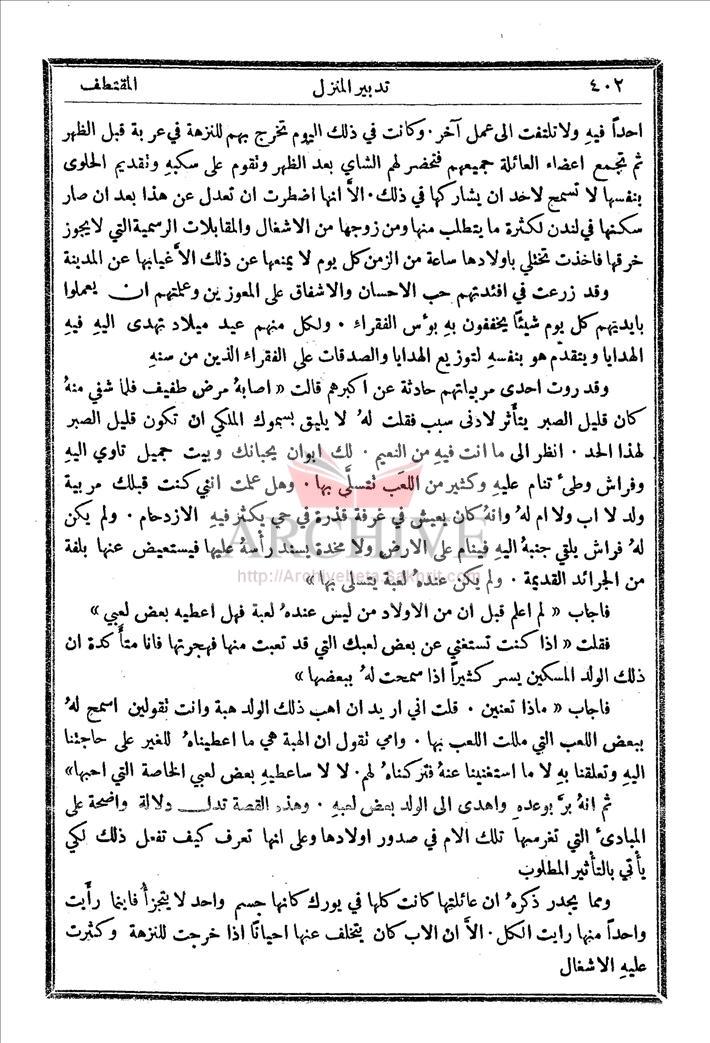 ٤٠٢ تدبير المنزل المقتطف
احداً فيهِ ولا تلتفت الى عمل آخر . وكانت في ذلك اليوم تخرج بهم للنزهة في عربة قبل الظهر
ثم تجمع اعضاء العائلة جميعهم فتحضر لهم الشاي بعد الظهر وتقوم على سكبهِ وتقديم الحلوى
بنفسها لا تسمح لاحد ان يشاركها في ذلك . الاَّ انها اضطرت ان تعدل عن هذا بعد ان صار
سكنها في لندن لكثرة ما يتطلب منها ومن زوجها من الاشغال والمقابلات الرسمية التي لا يجوز
خرقها فاخذت تختلي باولادها ساعة من الزمن كل يوم لا يمنعها عن ذلك الاَّ غيابها عن المدينة
وقد زرعت في افئدتهم حب الاحسان والاشفاق على المعوزين وعلمتهم ان يعملوا
بايديتهم كل يوم شيئاً يخففون بهِ بوٴس الفقراء . ولكل منهم عيد ميلاد تهدى اليهِ فيهِ
الهدايا ويتقدَّم هو بنفسهِ لتوزيع الهدايا والصدقات على الفقراء الذين من سنهِ
وقد روت احدى مربياتهم حادثة عن اكبرهم قالت « اصابهُ مرض طفيف فلما شفي منهُ
كان قليل الصبر يتأَثر لادنى سبب فقلت لهُ لا يليق بسموك الملكي ان تكون قليل الصبر
لهذا الحد . انظر الى ما انت فيهِ من النعيم . لك ابوان يحبانك وبيت جميل تاوي اليهِ
وفراش وطىءٌ تنام عليهِ وكثير من اللعَب تتسلَّى بها . وهل علمت انني كنت قبلك مربية
ولد لا اب ولا ام لهُ وانهُ كان يعيش في غرفة قذرة في حي يكثر فيهِ الازدحام . ولم يكن
لهُ فراش يلقي جنبهُ اليهِ فينام على الارض ولا مخدة يسند رأْسهُ عليها فيستعيض عنها بلفة
من الجرائد القديمة . ولم يكن عندهُ لعبة يتسلى بها »
فاجاب « لم اعلم قبل ان من الاولاد من ليس عندهُ لعبة فهل اعطيهِ بعض لعبي »
فقلت « اذا كنت تستغني عن بعض لعبك التي قد تعبت منها فهجرتها فانا متأَكدة ان
ذلك الولد المسكين يسر كثيراً اذا سمحت لهُ ببعضها »
فاجاب « ماذا تعنين . قلت اني اريد ان اهب ذلك الولد هبة وانت تقولين اسمح لهُ
ببعض اللعب التي مللت اللعب بها . وامي تقول ان الهبة هي ما اعطيناهُ للغير على حاجتنا
اليهِ وتعلقنا بهِ لا ما استغنينا عنهُ فتركناهُ لهم . لا لا ساعطيهِ بعض لعبي الخاصة التي احبها »
ثم انهُ برَّ بوعدهِ واهدى الى الولد بعض لعبهِ . وهذه القصة تدل دلالة واضحة على
المبادىء التي تغرسها تلك الام في صدور اولادها وعلى انها تعرف كيف تفعل ذلك لكي
يأْتي بالتأْثير المطلوب
ومما يجدر ذكرهُ ان عائلتها كانت كلها في يورك كانها جسم واحد لا يتجزأُ فاينما رأَيت
واحداً منها رايت الكل . الاَّ ان الاب كان يتخلف عنها احياناً اذا خرجت للنزهة وكثرت
عليهِ الاشغال
ARCHIVE
http://Archivebeta.Sakhrit.com